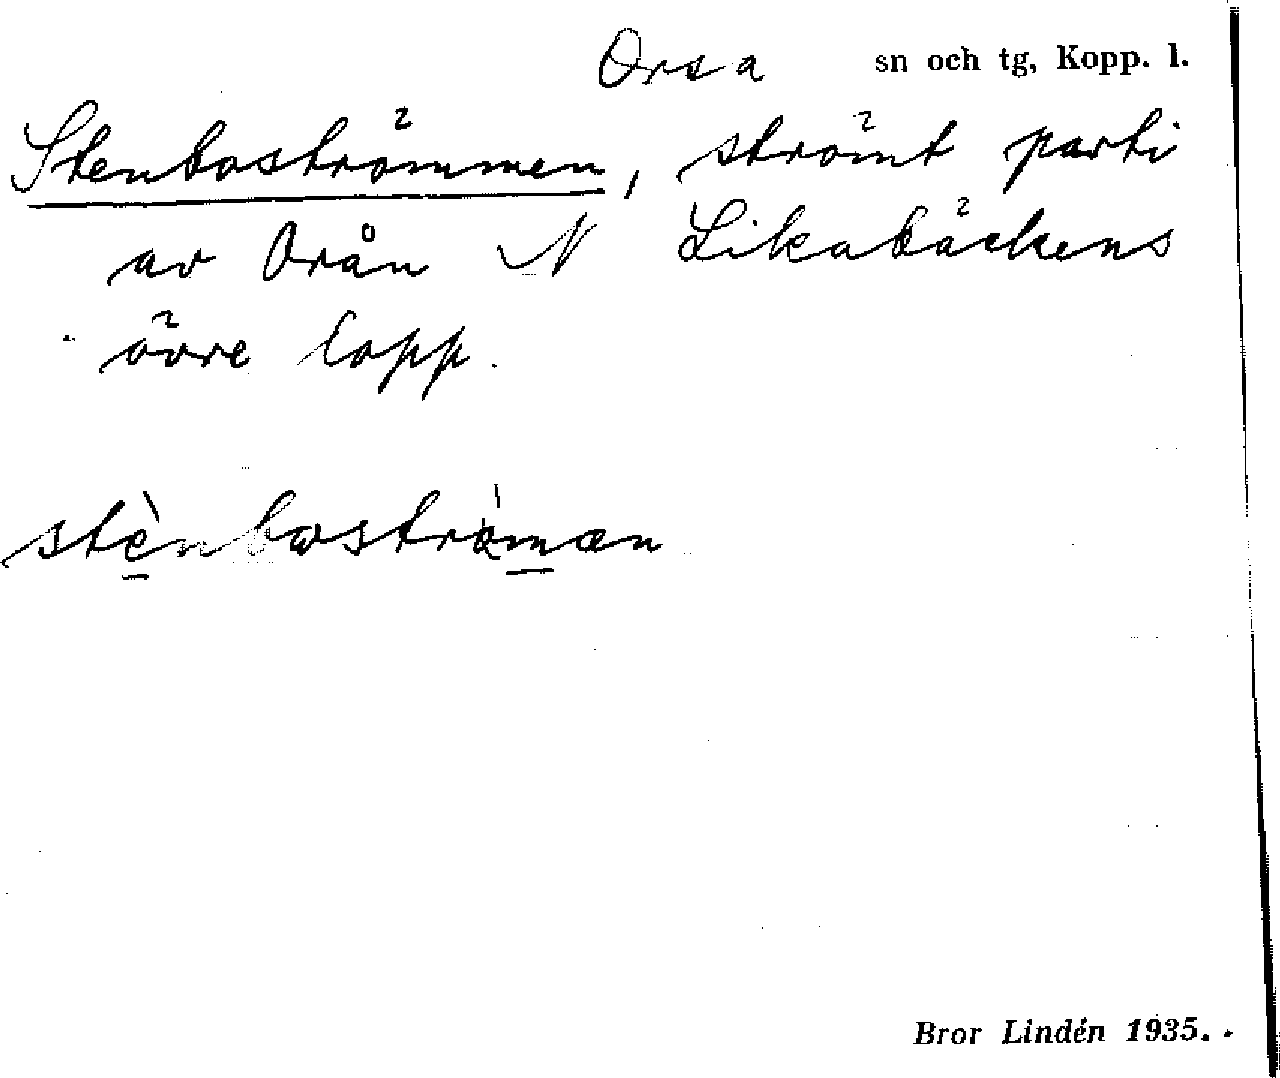 Orsa sn och tg, Kopp. l.
Stenboströmmen, strömt parti
av Orån N Likabäckens
övre lopp.
stènboströ̀mæn
Bror Lindén 1935.